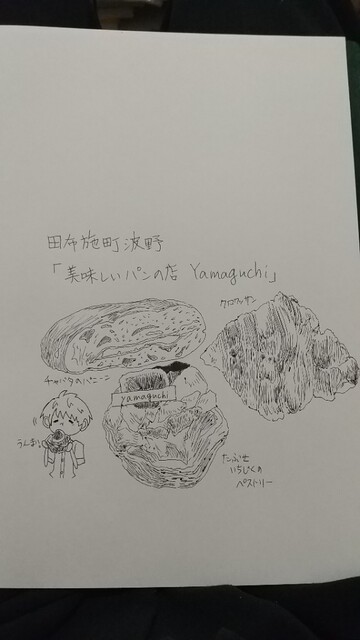 田布施町波野
「美味しいパンの店 Yamaguchi」
クロワッサン
チャバタのパニーニ
yamaguchi
うんまっ
たぶせ
いちじくの
ペストリー